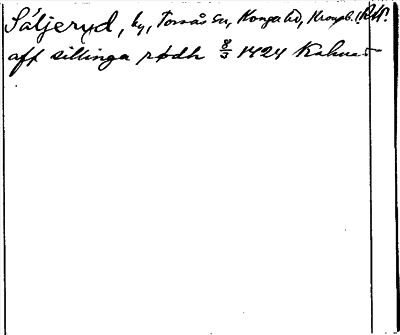 Säljeryd, by, Torsås sn, Konga hd, Kronob. l. RH.
aff sillinga rødh 8/3 1424 Kalmar